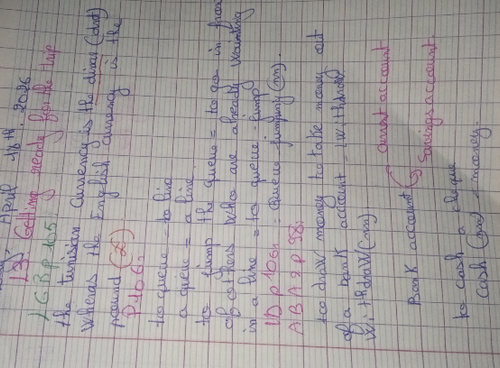 April 14th, 2026
L3 Getting ready for the trip
1 GB p 105.
the tunisian currency is the dinar (dnt)
wheras the English currency is the
pound (£)
P 106.
to queue = to line
a queue = a line.
to jump the queue = to go in front
of others who are already waiting
in a line = to queue-jump
1D p 106. = queue-jumping (n).
AB A 2 p 98.
to draw money to take money out
of a bank account = withdraw
withdraw (n).
Bank account current account
Savings account.
to cash a cheque
cash (n) = money.